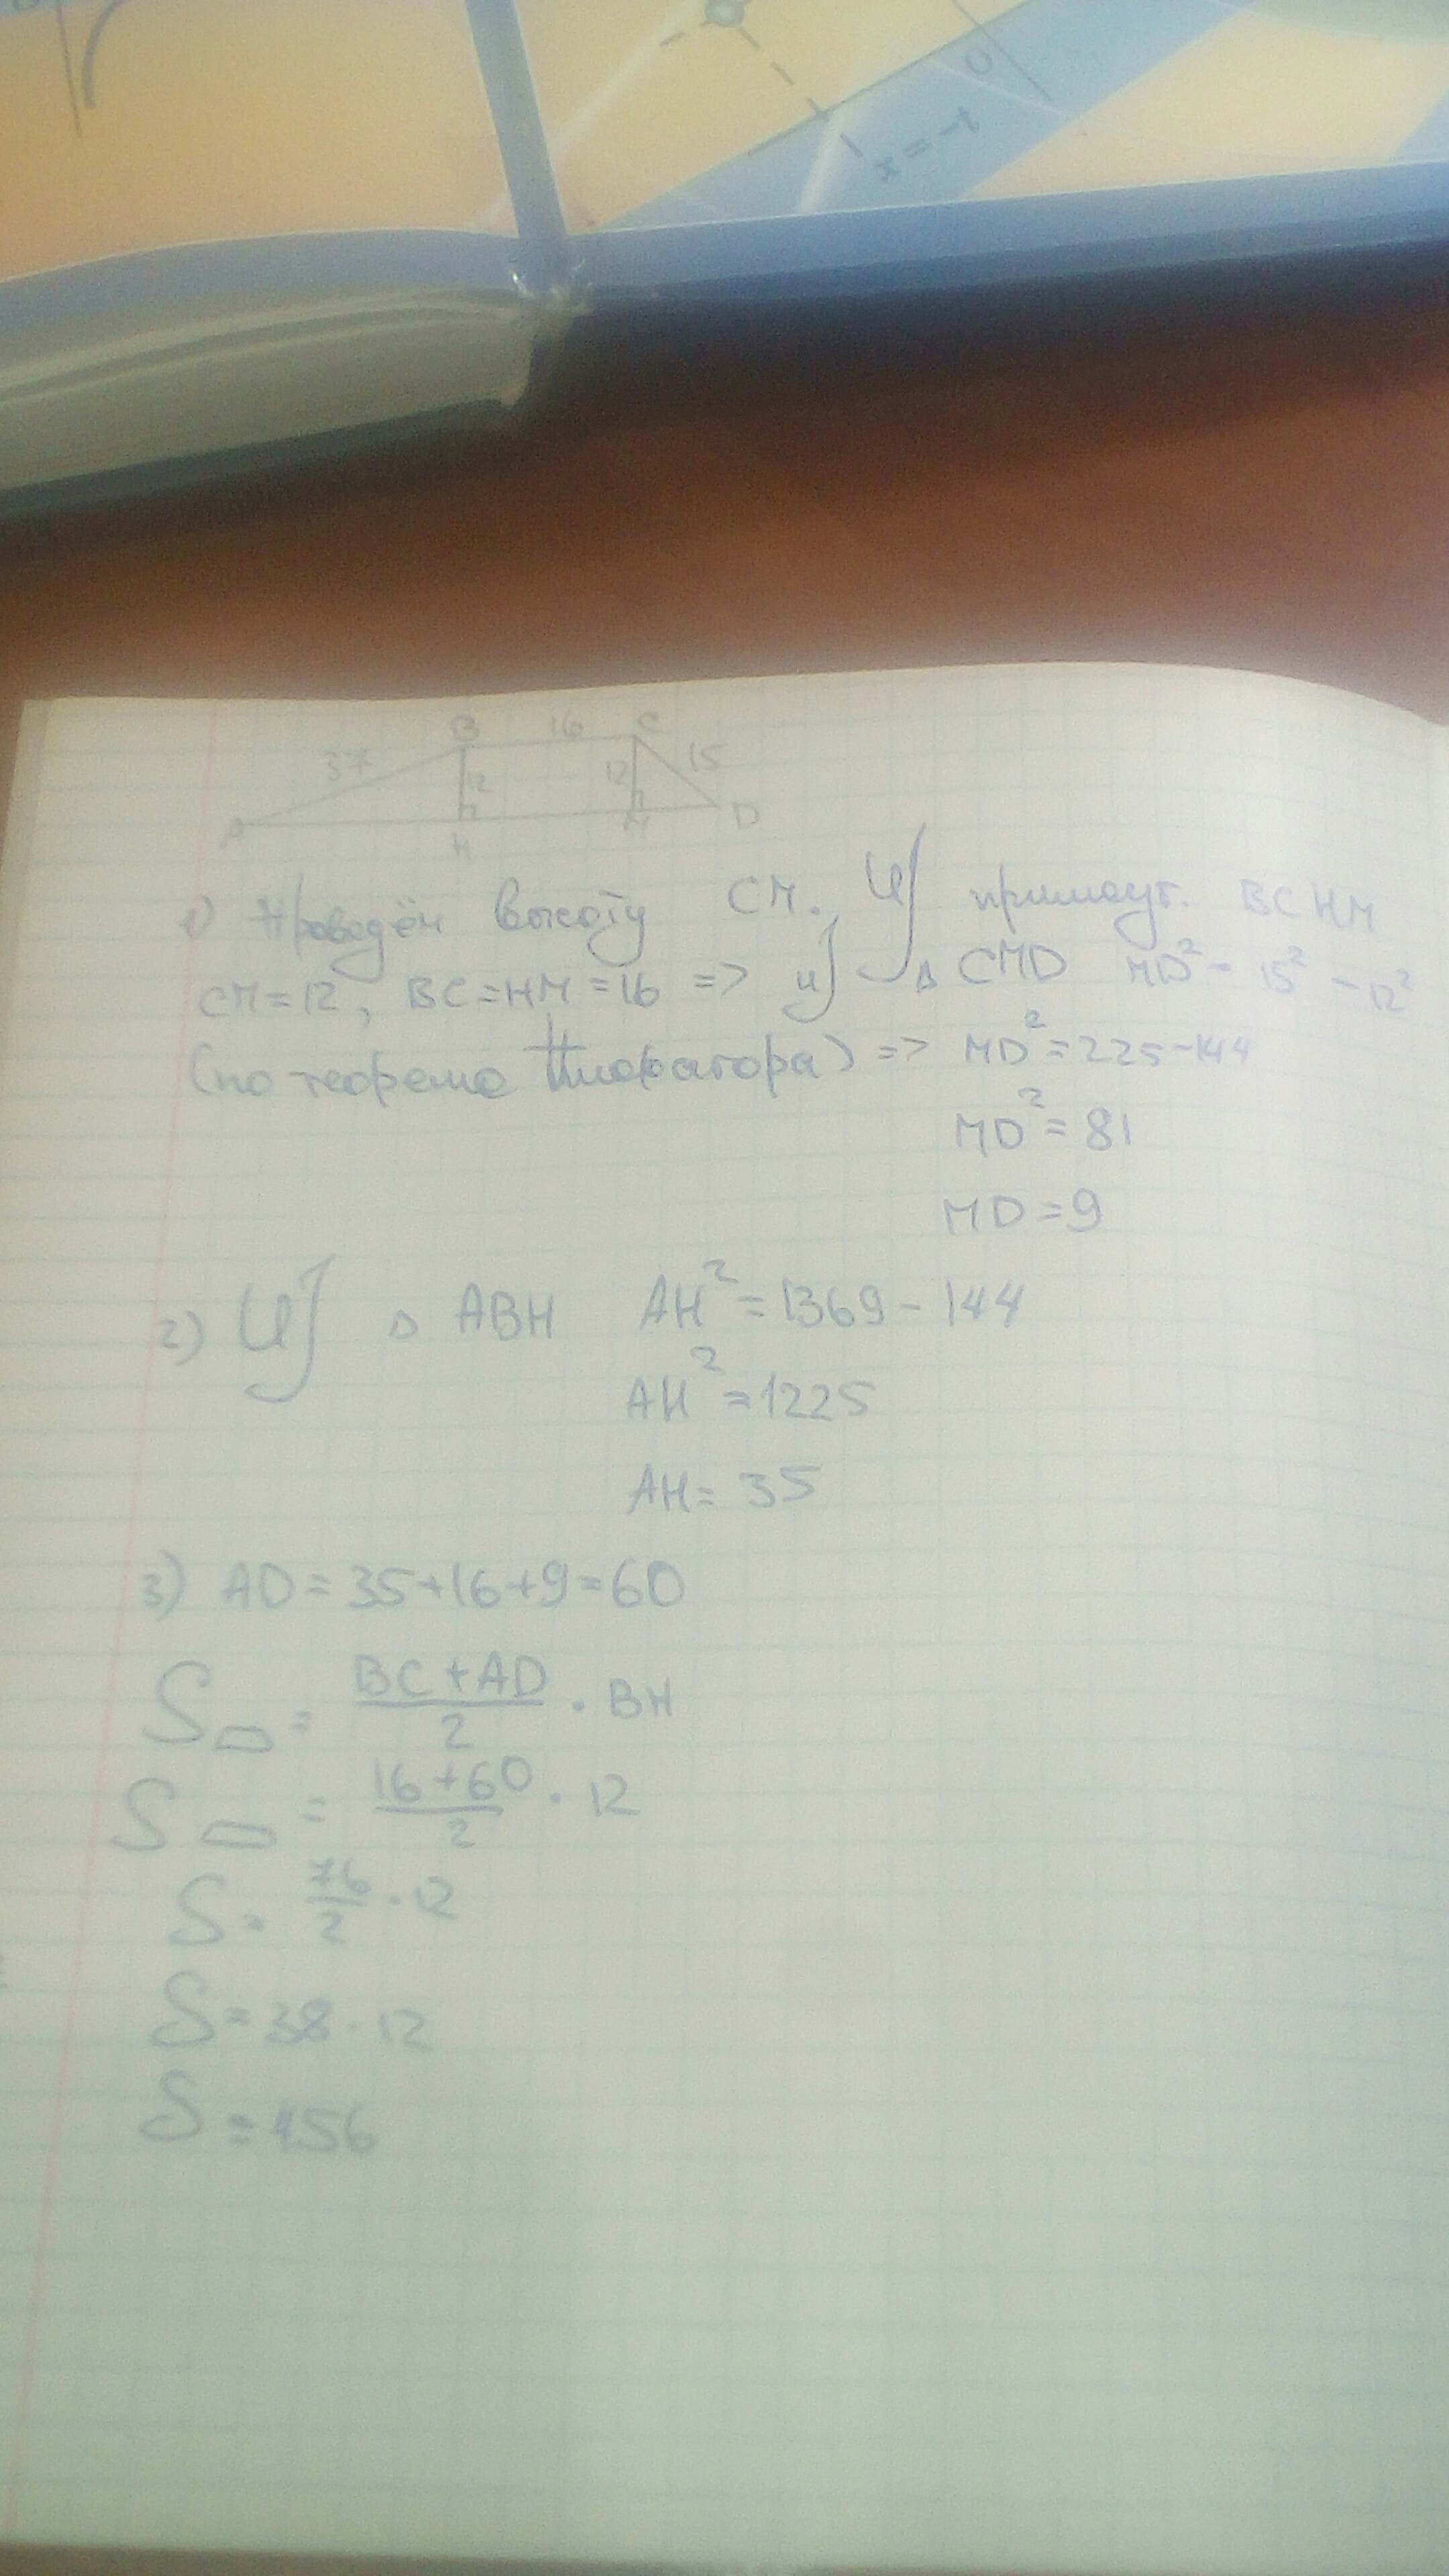 x = -1
0
B 16 C
37 12 12 15
A H M D
1) Проведём высоту CM. Из прямоуг. BCHM
CM=12, BC=HM=16 => из △ CMD MD²= 15² - 12²
(по теореме Пифагора) => MD²=225-144
MD²=81
MD=9
2) Из △ ABH AH²=1369-144
AH²=1225
AH=35
3) AD=35+16+9=60
S = BC+AD/2 · BH
S = 16+60/2 · 12
S = 76/2 · 12
S=38·12
S=456